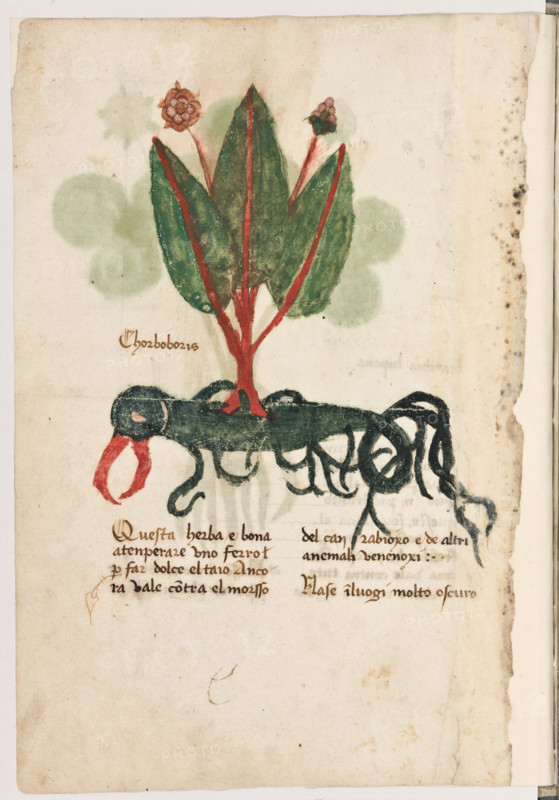 Chorboboris
Questa herba e bona
atenperare vno ferro ł
p far dolce el taio Anco
ra vale cōtra el morsso
del can rabioxo e de altri
anemali venenoxi :~
Nase īluogi molto oscuro